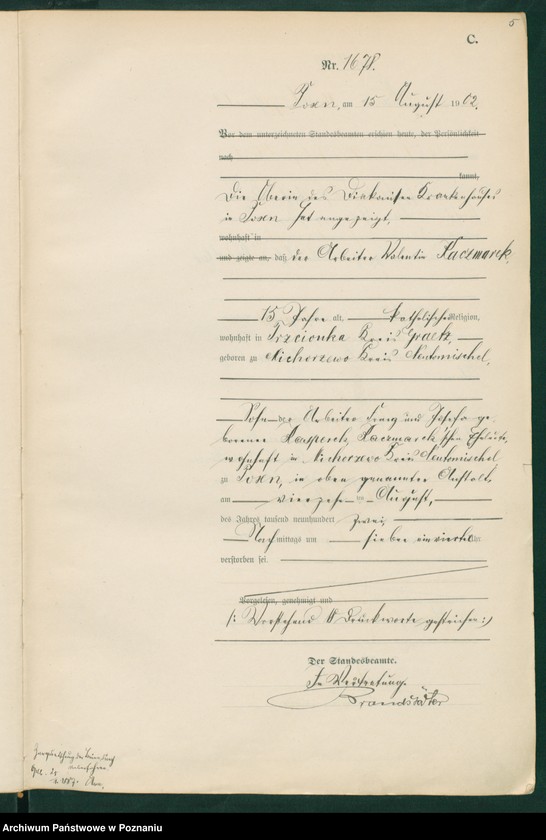 5
C.
Nr. 1678.
Posen, am 15 August 1902.
Vor dem unterzeichneten Standesbeamten erschien heute, der Persönlichkeit
nach
kannt,
Die Oberin des Diakonissen Krankenhauses
in Posen hat angezeigt,
wohnhaft in
und zeigte an, daß der Arbeiter Valentin Kaczmarek,
15 Jahre alt, katholischer Religion,
wohnhaft in Trzcionka Kreis Graetz,
geboren zu Michorzewo Kreis Neutomischel,
Sohn der Arbeiter Franz und Josefa ge-
borener Kaczmarek'schen Eheleute,
wohnhaft in Michorzewo Kreis Neutomischel
zu Posen, in oben genannter Anstalt,
am vierzehnten August,
des Jahres tausend neunhundert zwei,
Nachmittags um sieben einviertel Uhr
verstorben sei.
Vorgelesen, genehmigt und
/: Vorstehend Druckworte gestrichen :/
Der Standesbeamte.
In Vertretung.
Brandstäter
Archiwum Państwowe w Poznaniu